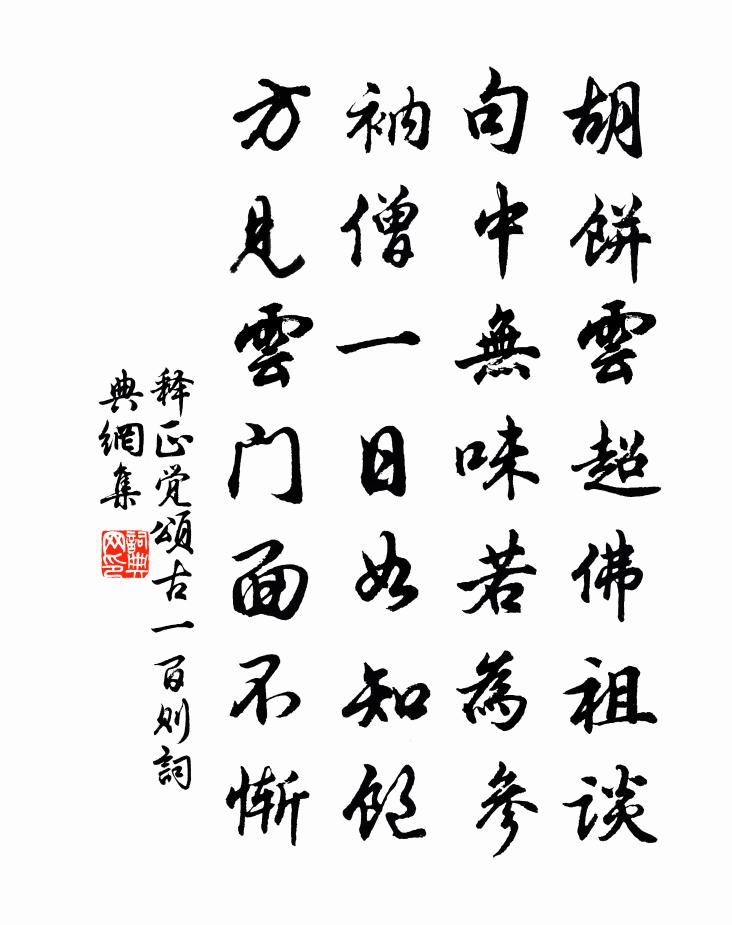 胡餅雲超佛祖談
句中無味若為參
衲僧一日如知飽
方見雲门面不慚
释正觉頌古一百则詞
典網集
詞典网印